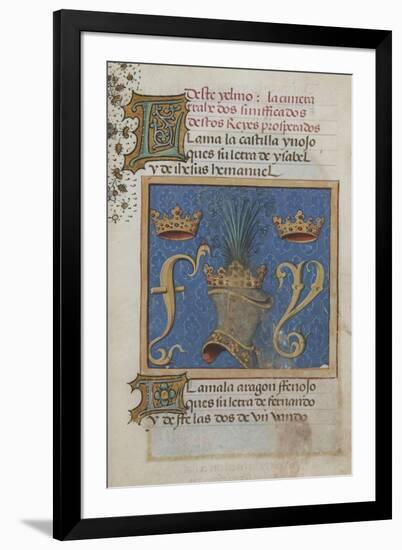 Deste yelmo: la cimera
trahe dos sinifficados
destos Reyes prosperados
Llama la castilla ynojo
ques su letra de ysabel
y de ihesus hemanuel
f y
Llamala aragon ffenojo
ques su letra de fernando
y desse las dos de vn vando